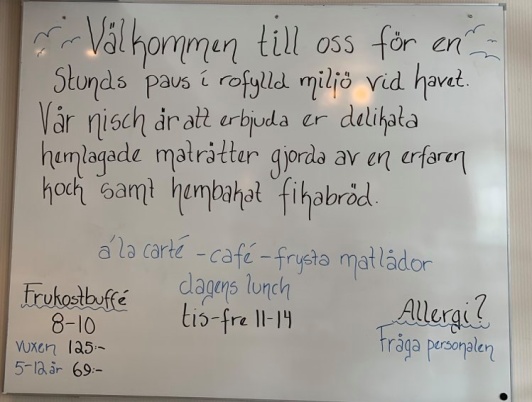 Välkommen till oss för en
Stunds paus i rofylld miljö vid havet.
Vår nisch är att erbjuda er delikata
hemlagade maträtter gjorda av en erfaren
kock samt hembakat fikabröd.
a´la carté - café - frysta matlådor
dagens lunch
tis-fre 11-14
Frukostbuffé
8-10
vuxen 125:-
5-12 år 69:-
Allergi?
Fråga personalen